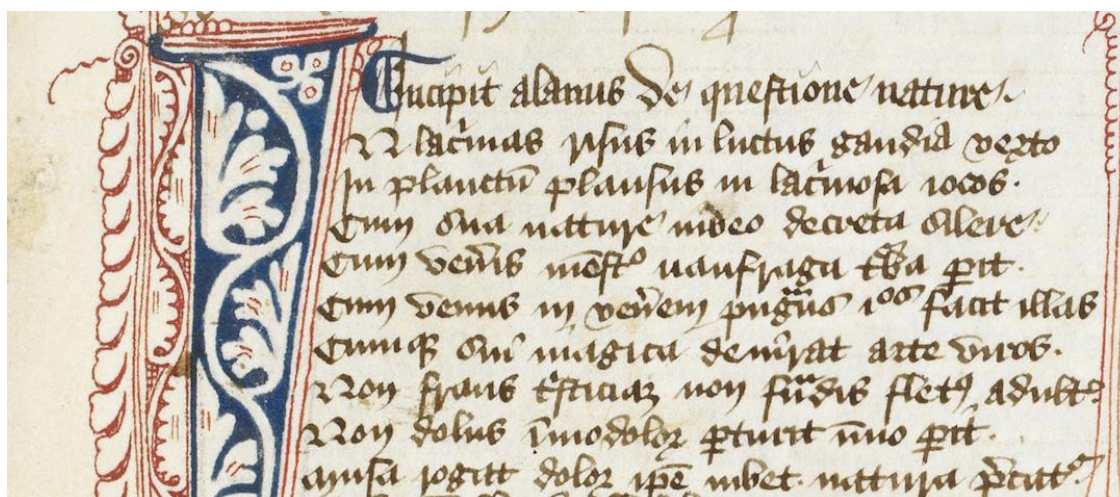 Incipit alanus de questione nature
N lacrimas risus in luctus gaudia verto
In planctū plausus in lacrimosa iocos
Cum sua nature video decreta silere
Cum veneris naufraga turba perit
Cum venus in venerem pugnans ios facit illas
Cumq sui magica devirat arte viros
Non fraus tristiciam non fraudis fletus adulter
Non dolus īmo dolor parturit īmo parit
Musa rogat dolor ipe iubet natura precatur